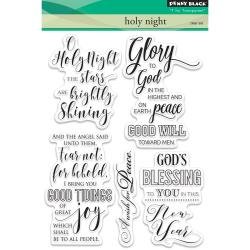 PENNY BLACK
holy night
O
Holy Night
THE STARS
ARE
Brightly
Shining
Glory
to
God
IN THE
HIGHEST AND
ON
EARTH peace
GOOD WILL
TOWARD MEN.
AND THE ANGEL SAID
UNTO THEM,
Fear not:
for behold,
I BRING YOU
GOOD TIDINGS
OF
GREAT joy
WHICH SHALL
BE TO ALL PEOPLE.
A wish for Peace.
GOD'S
BLESSING
TO YOU IN THIS
New
Year